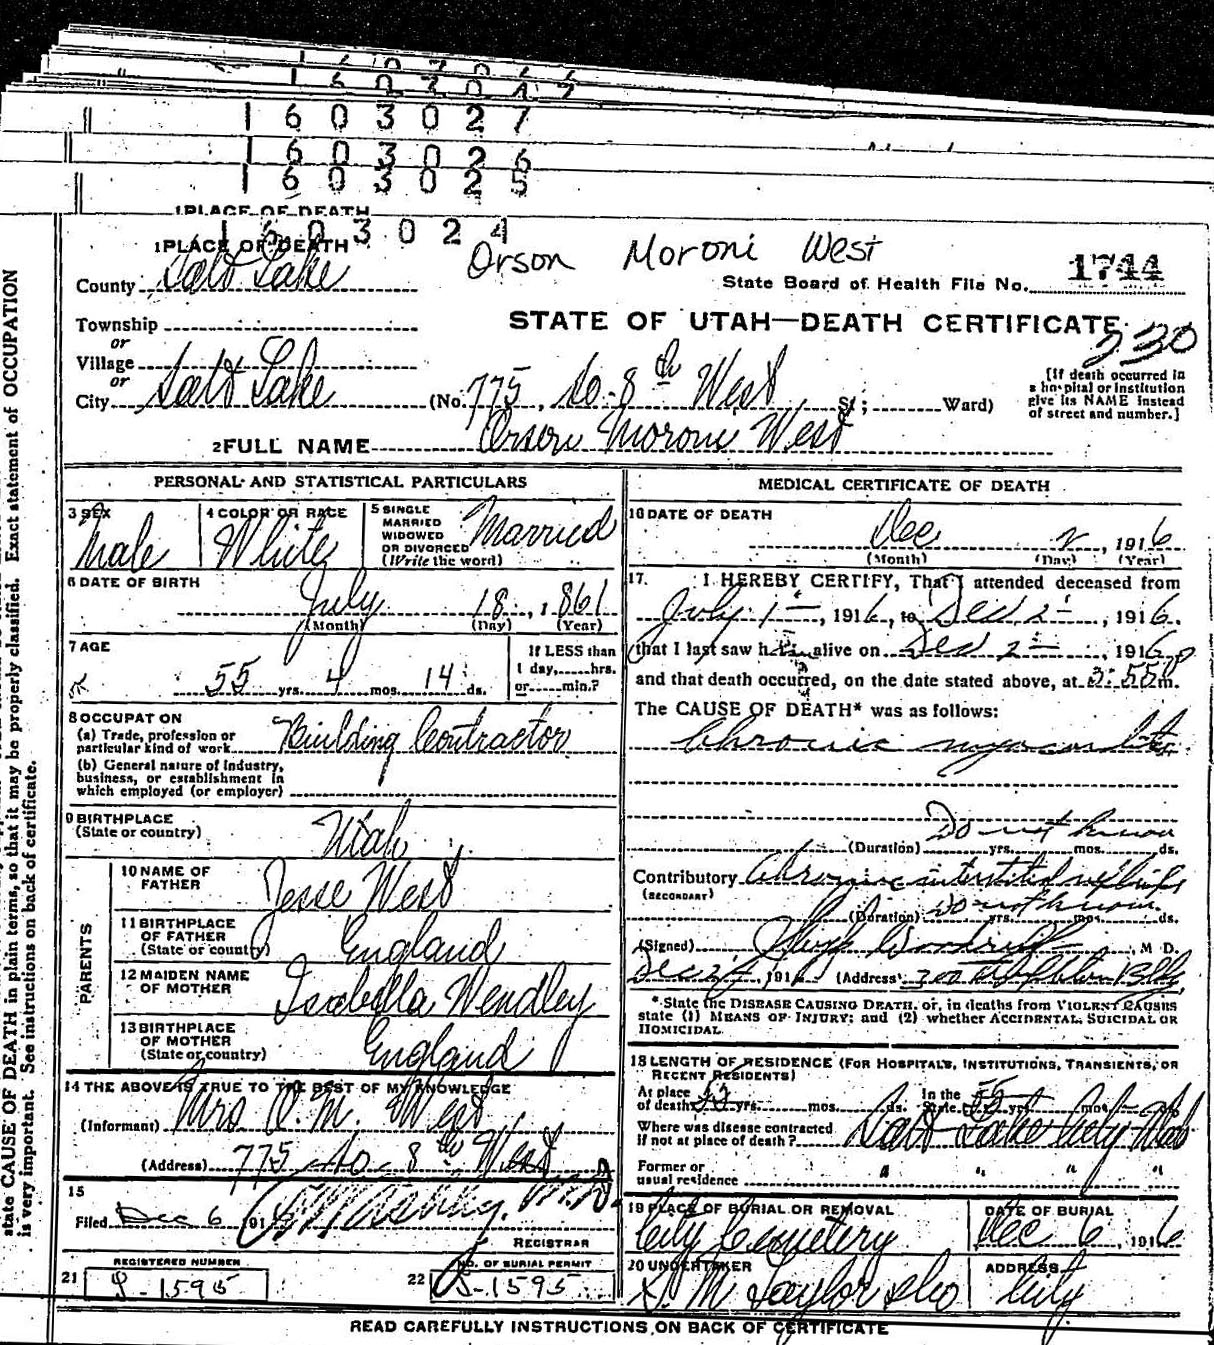 1 6 0 3 0 2 7
1 6 0 3 0 2 6
1 6 0 3 0 2 5
1 PLACE OF DEATH
1 6 0 3 0 2 4
1 PLACE OF DEATH
Orson Moroni West
County Salt Lake
State Board of Health File No. 1744
Township
or
STATE OF UTAH—DEATH CERTIFICATE
230
Village
or
City Salt Lake (No. 775, So. 8th West St; Ward)
[If death occurred in
a hospital or institution
give its NAME instead
of street and number.]
2 FULL NAME Orson Moroni West
PERSONAL AND STATISTICAL PARTICULARS
3 SEX
Male
4 COLOR OR RACE
White
5 SINGLE
MARRIED
WIDOWED
OR DIVORCED
(Write the word)
Married
6 DATE OF BIRTH
July 18, 1861
(Month) (Day) (Year)
7 AGE
55 yrs. 4 mos. 14 ds.
If LESS than
1 day, hrs.
or min.?
8 OCCUPATION
(a) Trade, profession or
particular kind of work Building Contractor
(b) General nature of industry,
business, or establishment in
which employed (or employer)
9 BIRTHPLACE
(State or country) Utah
PARENTS
10 NAME OF
FATHER Jesse West
11 BIRTHPLACE
OF FATHER
(State or country) England
12 MAIDEN NAME
OF MOTHER Isabella Wendley
13 BIRTHPLACE
OF MOTHER
(State or country) England
14 THE ABOVE IS TRUE TO THE BEST OF MY KNOWLEDGE
(Informant) Mrs O. M. West
(Address) 775 So 8th West
15
Filed Dec 6, 191
REGISTRAR
REGISTERED NUMBER
21 S-1595
NO. OF BURIAL PERMIT
22 S-1595
MEDICAL CERTIFICATE OF DEATH
16 DATE OF DEATH
Dec 2, 1916
(Month) (Day) (Year)
17. I HEREBY CERTIFY, That I attended deceased from
July 1, 1916, to Dec 2, 1916.
that I last saw him alive on Dec 2, 1916
and that death occurred, on the date stated above, at 3:55 p m.
The CAUSE OF DEATH* was as follows:
Chronic myocarditis
Do not know
(Duration) yrs. mos. ds.
Contributory Chronic interstitial nephritis
(SECONDARY)
Do not know
(Duration) yrs. mos. ds.
(Signed) Woodruff M D.
Dec 2, 1916 (Address)
*State the DISEASE CAUSING DEATH, or, in deaths from VIOLENT CAUSES
state (1) MEANS OF INJURY; and (2) whether ACCIDENTAL, SUICIDAL OR
HOMICIDAL.
18 LENGTH OF RESIDENCE (FOR HOSPITALS, INSTITUTIONS, TRANSIENTS, OR
RECENT RESIDENTS)
At place
of death yrs. mos. ds.
In the
State 55 yrs. mos. ds.
Where was disease contracted
if not at place of death? Salt Lake City Utah
Former or
usual residence " " " "
19 PLACE OF BURIAL OR REMOVAL
City Cemetery
DATE OF BURIAL
Dec 6, 1916
20 UNDERTAKER
S. M. Taylor & Co
ADDRESS
City
READ CAREFULLY INSTRUCTIONS ON BACK OF CERTIFICATE
state CAUSE OF DEATH in plain terms, so that it may be properly classified. Exact statement of OCCUPATION
is very important. See instructions on back of certificate.